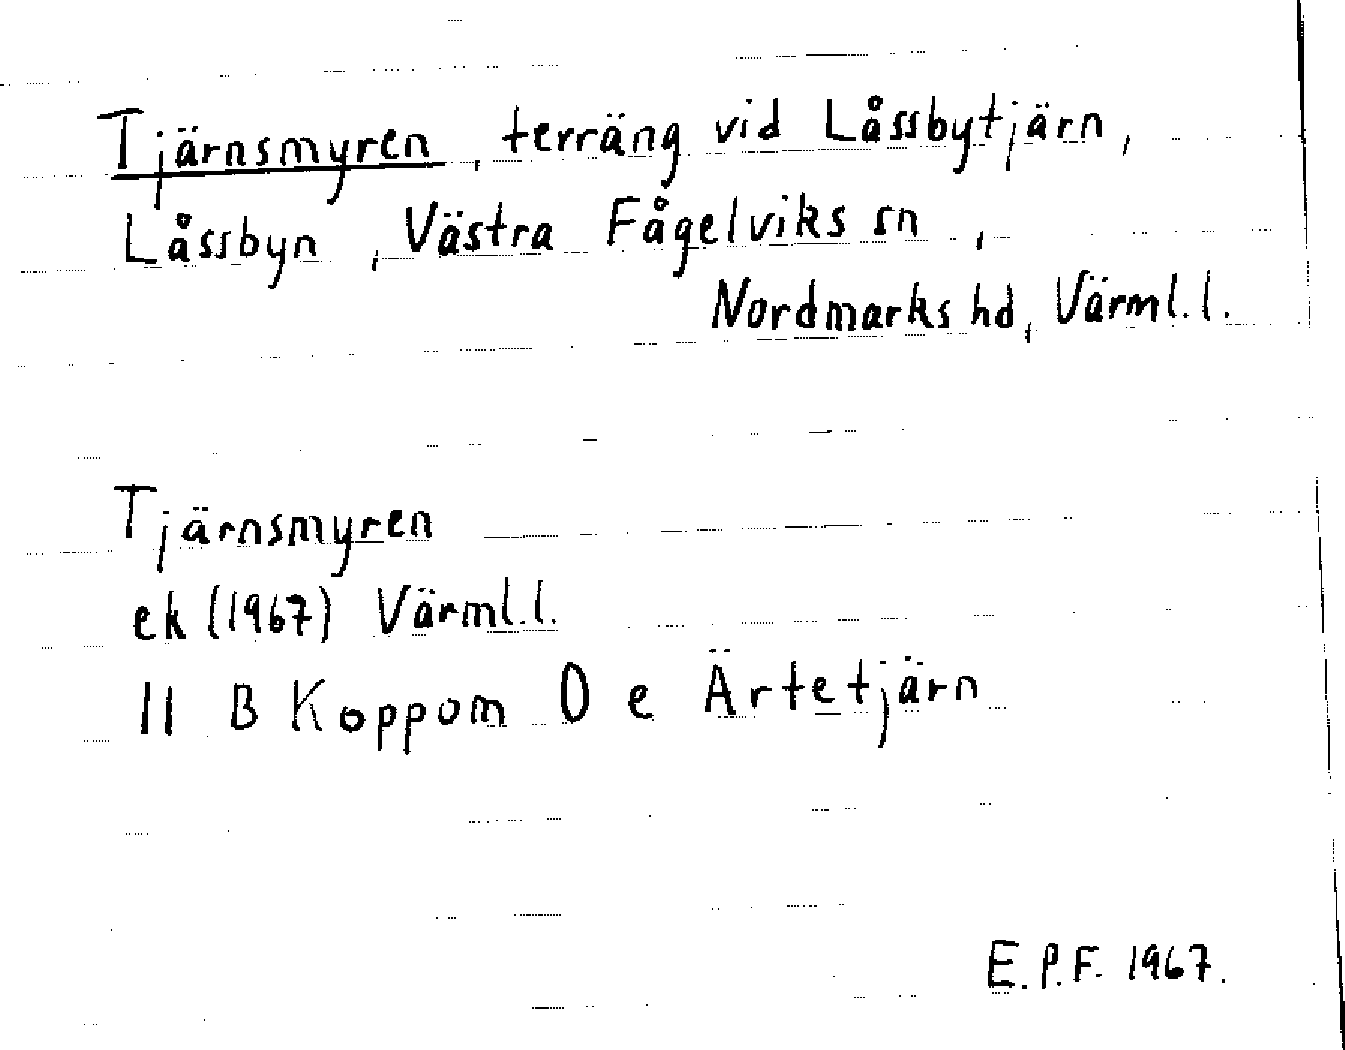 Tjärnsmyren, terräng vid Låssbytjärn,
Låssbyn, Västra Fågelviks sn,
Nordmarks hd, Värml.l.
Tjärnsmyren
ek (1967) Värml.l.
11 B Koppom 0 e Ärtetjärn
E.P.F. 1967.